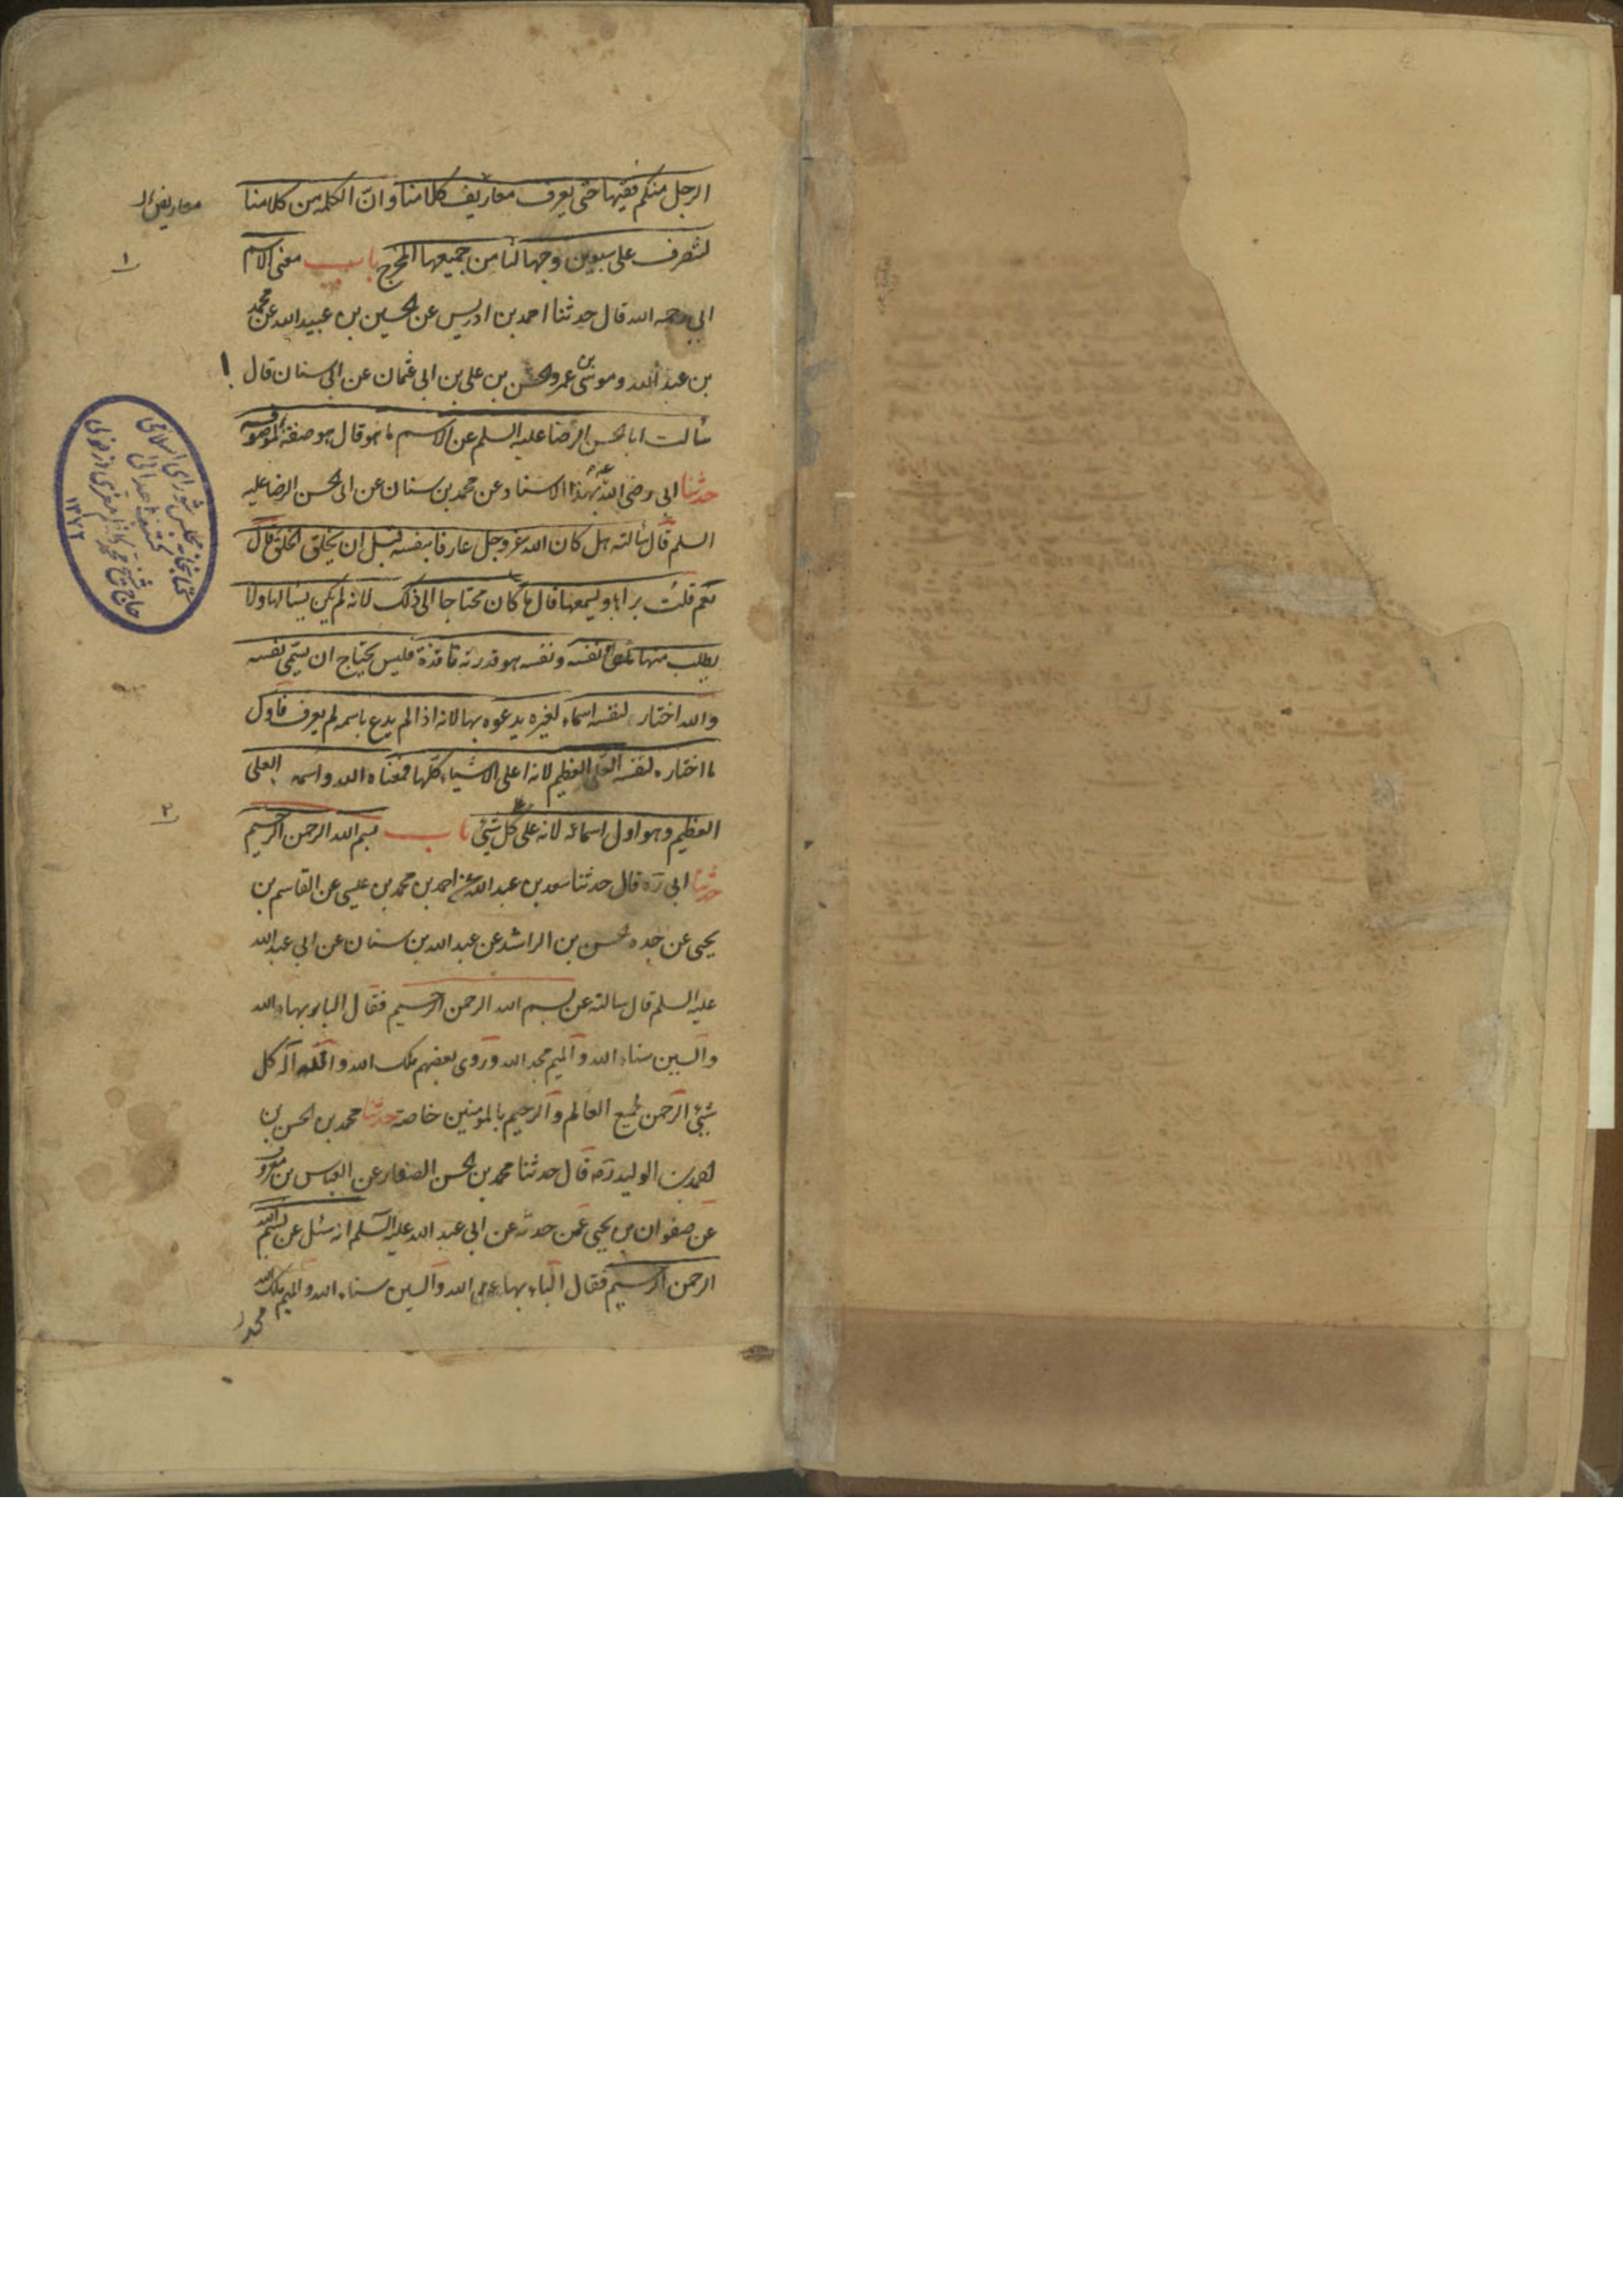 الرجل منكم فقيها حتى يعرف معاريض كلامنا وان الكلمه من كلامنا
معاريض
لتصرف على سبعين وجها لنا من جميعها المخرج باب معنى الاسم
١
ابي رحمه الله قال حدثنا احمد بن ادريس عن الحسين بن عبيد الله عن محمد
بن عبد الله وموسى بن عمرو الحسن بن على بن ابى عثمان عن ابى سنان قال
سألت ابا الحسن الرضا عليه السلم عن الاسم ما هو قال هو صفة لموصوف
حدثنا ابى رضى الله عنه بهذا الاسناد عن محمد بن سنان عن ابى الحسن الرضا عليه
السلم قال سألته هل كان الله عز وجل عارفا بنفسه قبل ان يخلق الخلق قال
نعم قلت يراها ويسمعها قال ما كان محتاجا الى ذلك لانه لم يكن يسالها ولا
يطلب منها نفسه ونفسه هو قدرته نافذة فليس يحتاج ان يسمى نفسه
والله اختار لنفسه اسماء لغيره يدعوه بها لانه اذا لم يدع باسمه لم يعرف فاول
ما اختاره لنفسه العلى العظيم لانه اعلى الاشياء كلها فمعناه الله واسمه العلى
العظيم وهو اول اسمائه لانه على كل شئ باب بسم الله الرحمن الرحيم
٢
حدثنا ابى ره قال حدثنا سعد بن عبد الله عن احمد بن محمد بن عيسى عن القاسم بن
يحيى عن جده الحسن بن الراشد عن عبد الله بن سنان عن ابى عبد الله
عليه السلم قال سالته عن بسم الله الرحمن الرحيم فقال الباء بهاء الله
والسين سناء الله والميم مجد الله وروى بعضهم ملك الله والله اله كل
شئ الرحمن لجميع العالم والرحيم بالمومنين خاصة حدثنا محمد بن الحسن بن
احمد بن الوليد ره قال حدثنا محمد بن الحسن الصفار عن العباس بن معروف
عن صفوان بن يحيى عمن حدثه عن ابى عبد الله عليه السلم انه سئل عن بسم الله
الرحمن الرحيم فقال الباء بهاء الله والسين سناء الله والميم ملك الله
كتابخانه مجلس شوراى اسلامى
حاج شيخ محمد
١٣٧٢